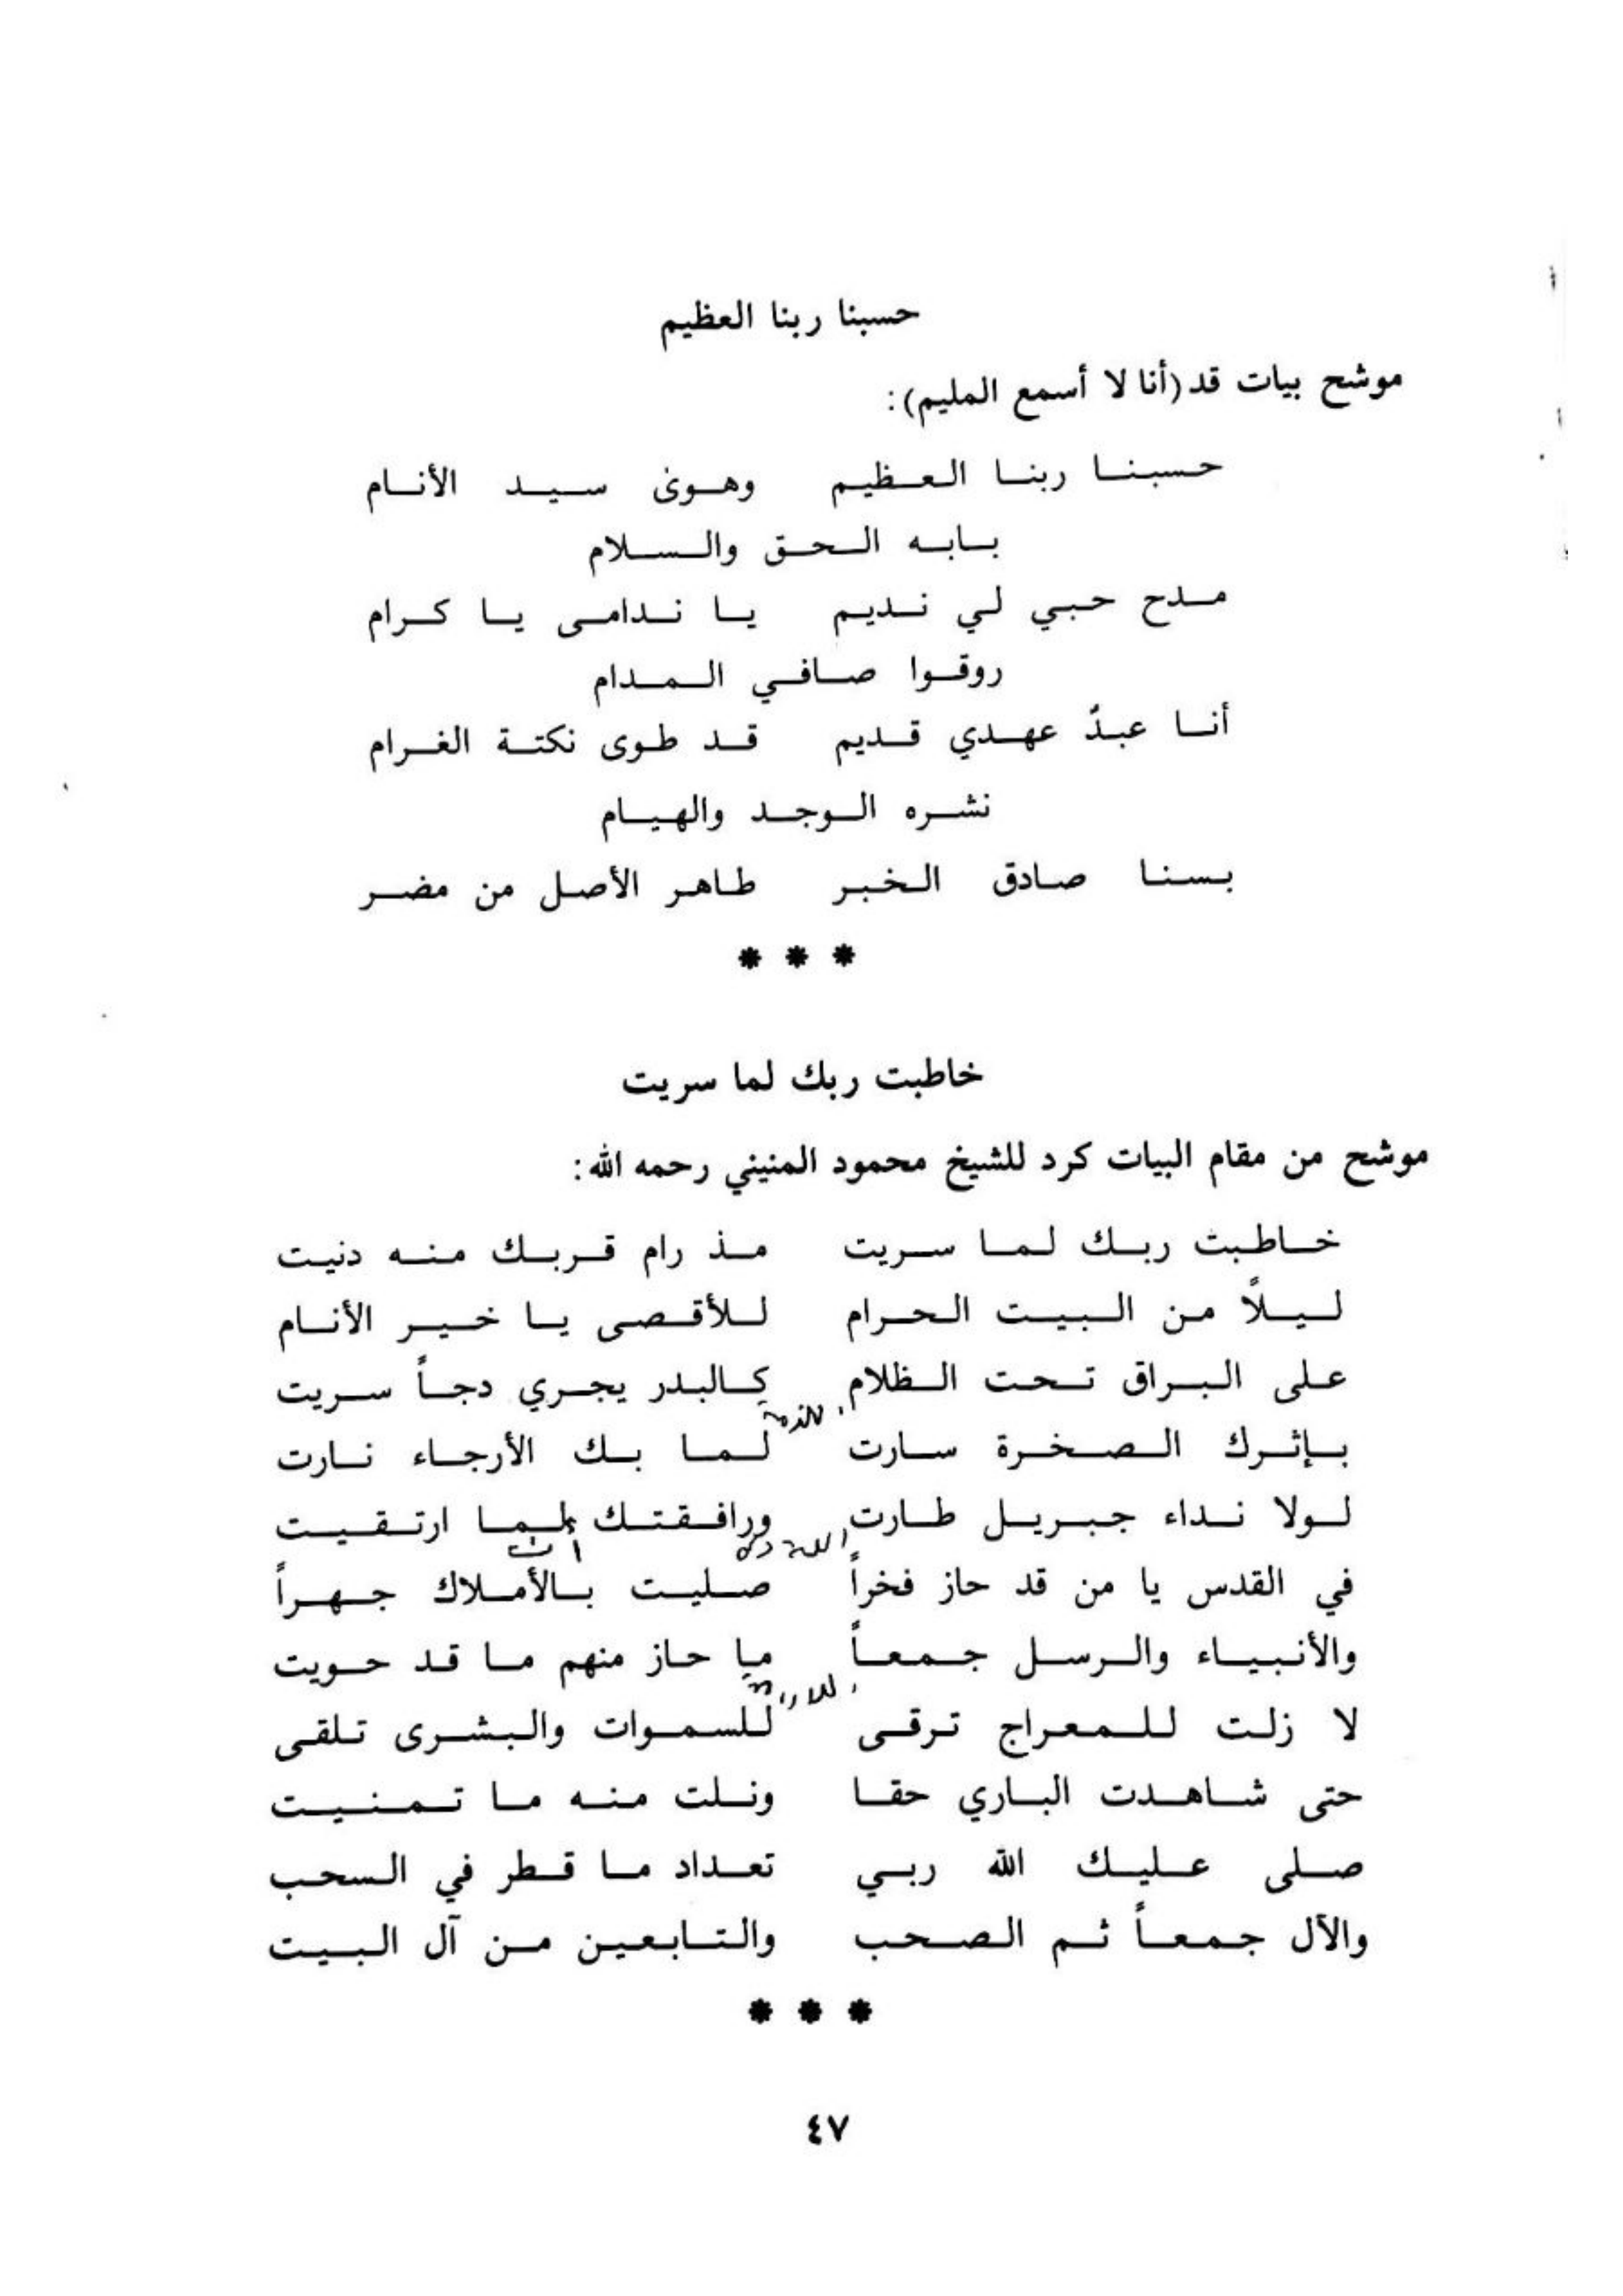 حسبنا ربنا العظيم
موشح بيات قد (أنا لا أسمع المليم):
حسبنا ربنا العظيم وهوىٰ سيد الأنام
بابه الحق والسلام
مدح حبي لي نديم يا ندامى يا كرام
روقوا صافي المدام
أنا عبدٌ عهدي قديم قد طوى نكتة الغرام
نشره الوجد والهيام
بسنا صادق الخبر طاهر الأصل من مضر
* * *
خاطبت ربك لما سريت
موشح من مقام البيات كرد للشيخ محمود المنيني رحمه الله:
خاطبت ربك لما سريت مذ رام قربك منه دنيت
ليلاً من البيت الحرام للأقصى يا خير الأنام
على البراق تحت الظلام كالبدر يجري دجاً سريت
بإثرك الصخرة سارت لما بك الأرجاء نارت
لولا نداء جبريل طارت ورافقتك لما ارتقيت
في القدس يا من قد حاز فخراً صليت بالأملاك جهراً
والأنبياء والرسل جمعاً ما حاز منهم ما قد حويت
لا زلت للمعراج ترقى للسموات والبشرى تلقى
حتى شاهدت الباري حقا ونلت منه ما تمنيت
صلى عليك الله ربي تعداد ما قطر في السحب
والآل جمعاً ثم الصحب والتابعين من آل البيت
* * *
٤٧